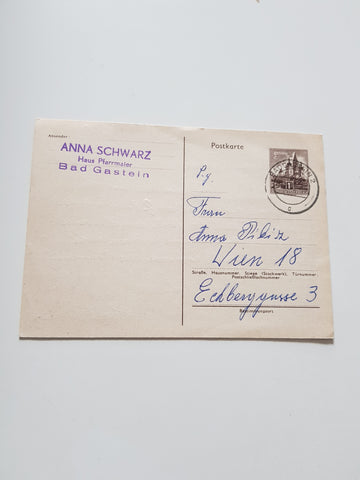 Absender:
ANNA SCHWARZ
Haus Pfarrmaier
Bad Gastein
Postkarte
P. g.
Frau
Anna
Wien 18
Straße, Hausnummer, Stiege (Stockwerk), Türnummer
Postschließfachnummer
Eckberggasse 3
Bestimmungsort